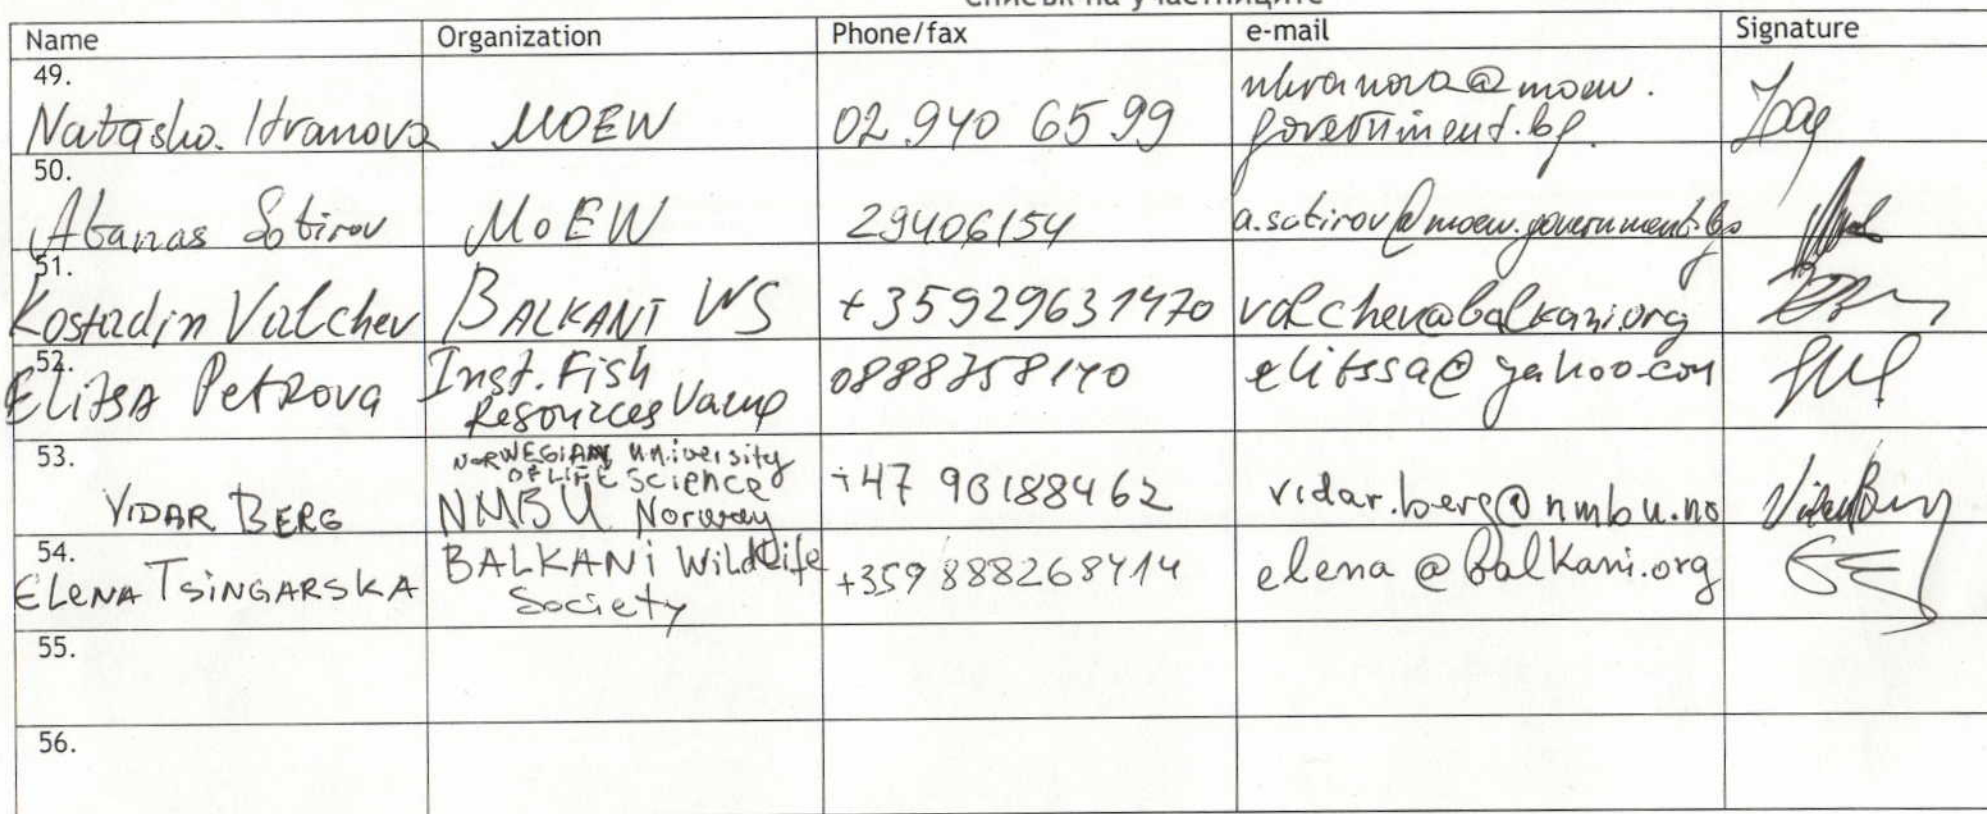 Списък на участниците
Name Organization Phone/fax e-mail Signature
49.
Natasha Hranova MOEW 02 940 65 99 nhranova@moew.
government.bg.
50.
Atanas Sotirov MoEW 29406154 a.sotirov@moew.government.bg
51.
Kostadin Valchev BALKANI WS +35929631470 valchev@balkani.org
52.
Elitsa Petrova Inst. Fish
Resources Varna 0888758140 elitssa@yahoo.com
53.
VIDAR BERG NORWEGIAN University
OF LIFE Science
NMBU Norway +47 90188462 vidar.berg@nmbu.no
54.
ELENA TSINGARSKA BALKANI WildLife
Society +359 888268414 elena@balkani.org
55.
56.